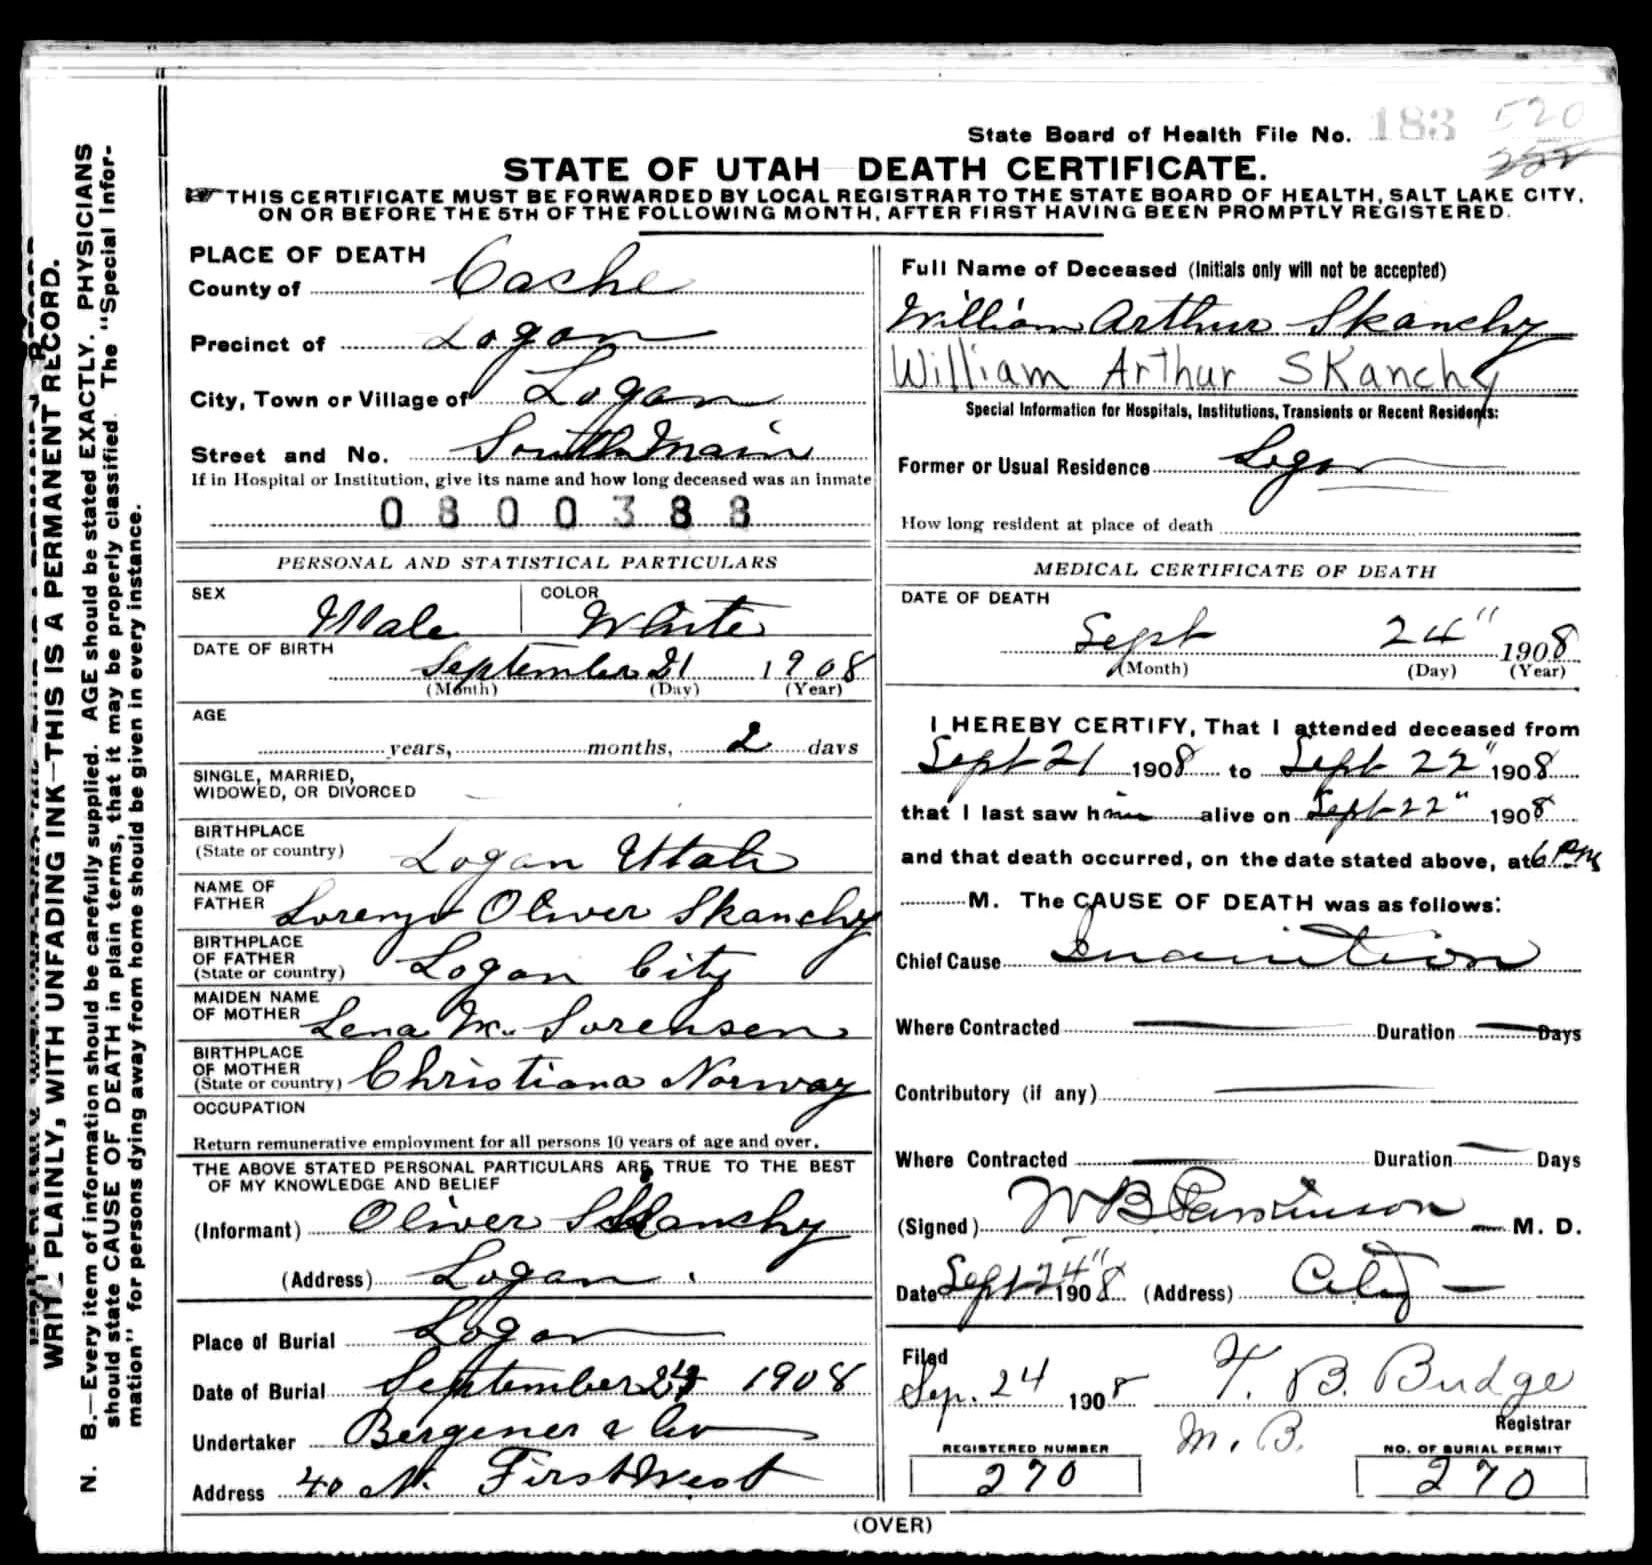 State Board of Health File No. 183 520
STATE OF UTAH DEATH CERTIFICATE.
THIS CERTIFICATE MUST BE FORWARDED BY LOCAL REGISTRAR TO THE STATE BOARD OF HEALTH, SALT LAKE CITY,
ON OR BEFORE THE 5TH OF THE FOLLOWING MONTH, AFTER FIRST HAVING BEEN PROMPTLY REGISTERED.
WRITE PLAINLY, WITH UNFADING INK—THIS IS A PERMANENT RECORD.
N. B.—Every item of information should be carefully supplied. AGE should be stated EXACTLY. PHYSICIANS
should state CAUSE OF DEATH in plain terms, that it may be properly classified. The "Special Infor-
mation" for persons dying away from home should be given in every instance.
PLACE OF DEATH
County of Cache
Precinct of Logan
City, Town or Village of Logan
Street and No. South Main
If in Hospital or Institution, give its name and how long deceased was an inmate
0800388
PERSONAL AND STATISTICAL PARTICULARS
SEX Male COLOR White
DATE OF BIRTH
September 21 1908
(Month) (Day) (Year)
AGE
years, months, 2 days
SINGLE, MARRIED,
WIDOWED, OR DIVORCED
BIRTHPLACE
(State or country) Logan Utah
NAME OF
FATHER Lorenzo Oliver Skanchy
BIRTHPLACE
OF FATHER
(State or country) Logan City
MAIDEN NAME
OF MOTHER Lena M. Sorensen
BIRTHPLACE
OF MOTHER
(State or country) Christiana Norway
OCCUPATION
Return remunerative employment for all persons 10 years of age and over.
THE ABOVE STATED PERSONAL PARTICULARS ARE TRUE TO THE BEST
OF MY KNOWLEDGE AND BELIEF
(Informant) Oliver Skanchy
(Address) Logan
Place of Burial Logan
Date of Burial September 24 1908
Undertaker Bergener & Co
Address 40 N. First West
Full Name of Deceased (Initials only will not be accepted)
William Arthur Skanchy
William Arthur Skanchy
Special Information for Hospitals, Institutions, Transients or Recent Residents:
Former or Usual Residence Logan
How long resident at place of death
MEDICAL CERTIFICATE OF DEATH
DATE OF DEATH
Sept 24" 1908
(Month) (Day) (Year)
I HEREBY CERTIFY, That I attended deceased from
Sept 21 1908 to Sept 22" 1908
that I last saw him alive on Sept 22" 1908
and that death occurred, on the date stated above, at 6 PM
M. The CAUSE OF DEATH was as follows:
Chief Cause Inanition
Where Contracted Duration Days
Contributory (if any)
Where Contracted Duration Days
(Signed) W B Parkinson M. D.
Date Sept 24" 1908 (Address) City
Filed
Sep. 24 1908 T. B. Budge
Registrar
M. B.
REGISTERED NUMBER
270
NO. OF BURIAL PERMIT
270
(OVER)